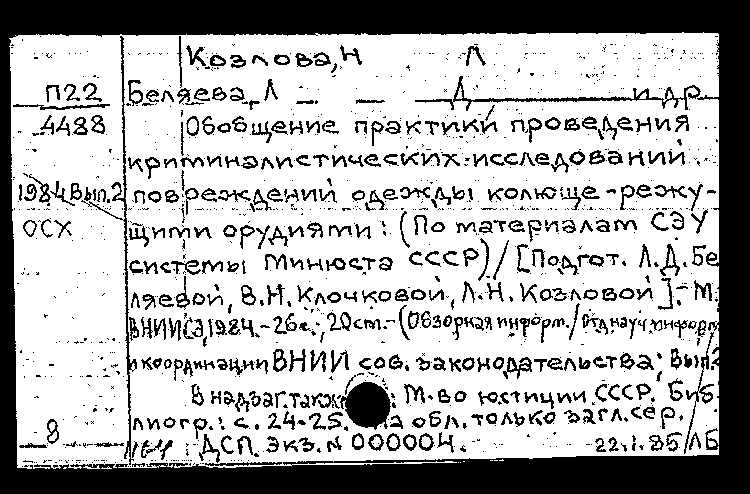 Козлова, Н Л
П22 Беляева, Л Д и др.
4488 Обобщение практики проведения
криминалистических исследований
1984 Вып. 2 повреждений одежды колюще-режу-
ОСХ щими орудиями: (По материалам СЭУ
системы Минюста СССР) / [Подгот. Л.Д. Бе
ляевой, В.Н. Клочковой, Л.Н. Козловой]. - М.
ВНИИСЭ, 1984. - 26 с.; 20 см. - (Обзорная информ. / Отд науч информ
и координации ВНИИ сов. законодательства; Вып. 2
В надзаг. также: М-во юстиции СССР. Биб
лиогр.: с. 24-25. На обл. только загл. сер.
8 ДСП. Экз. N 000004. 22.1.85 ЛБ